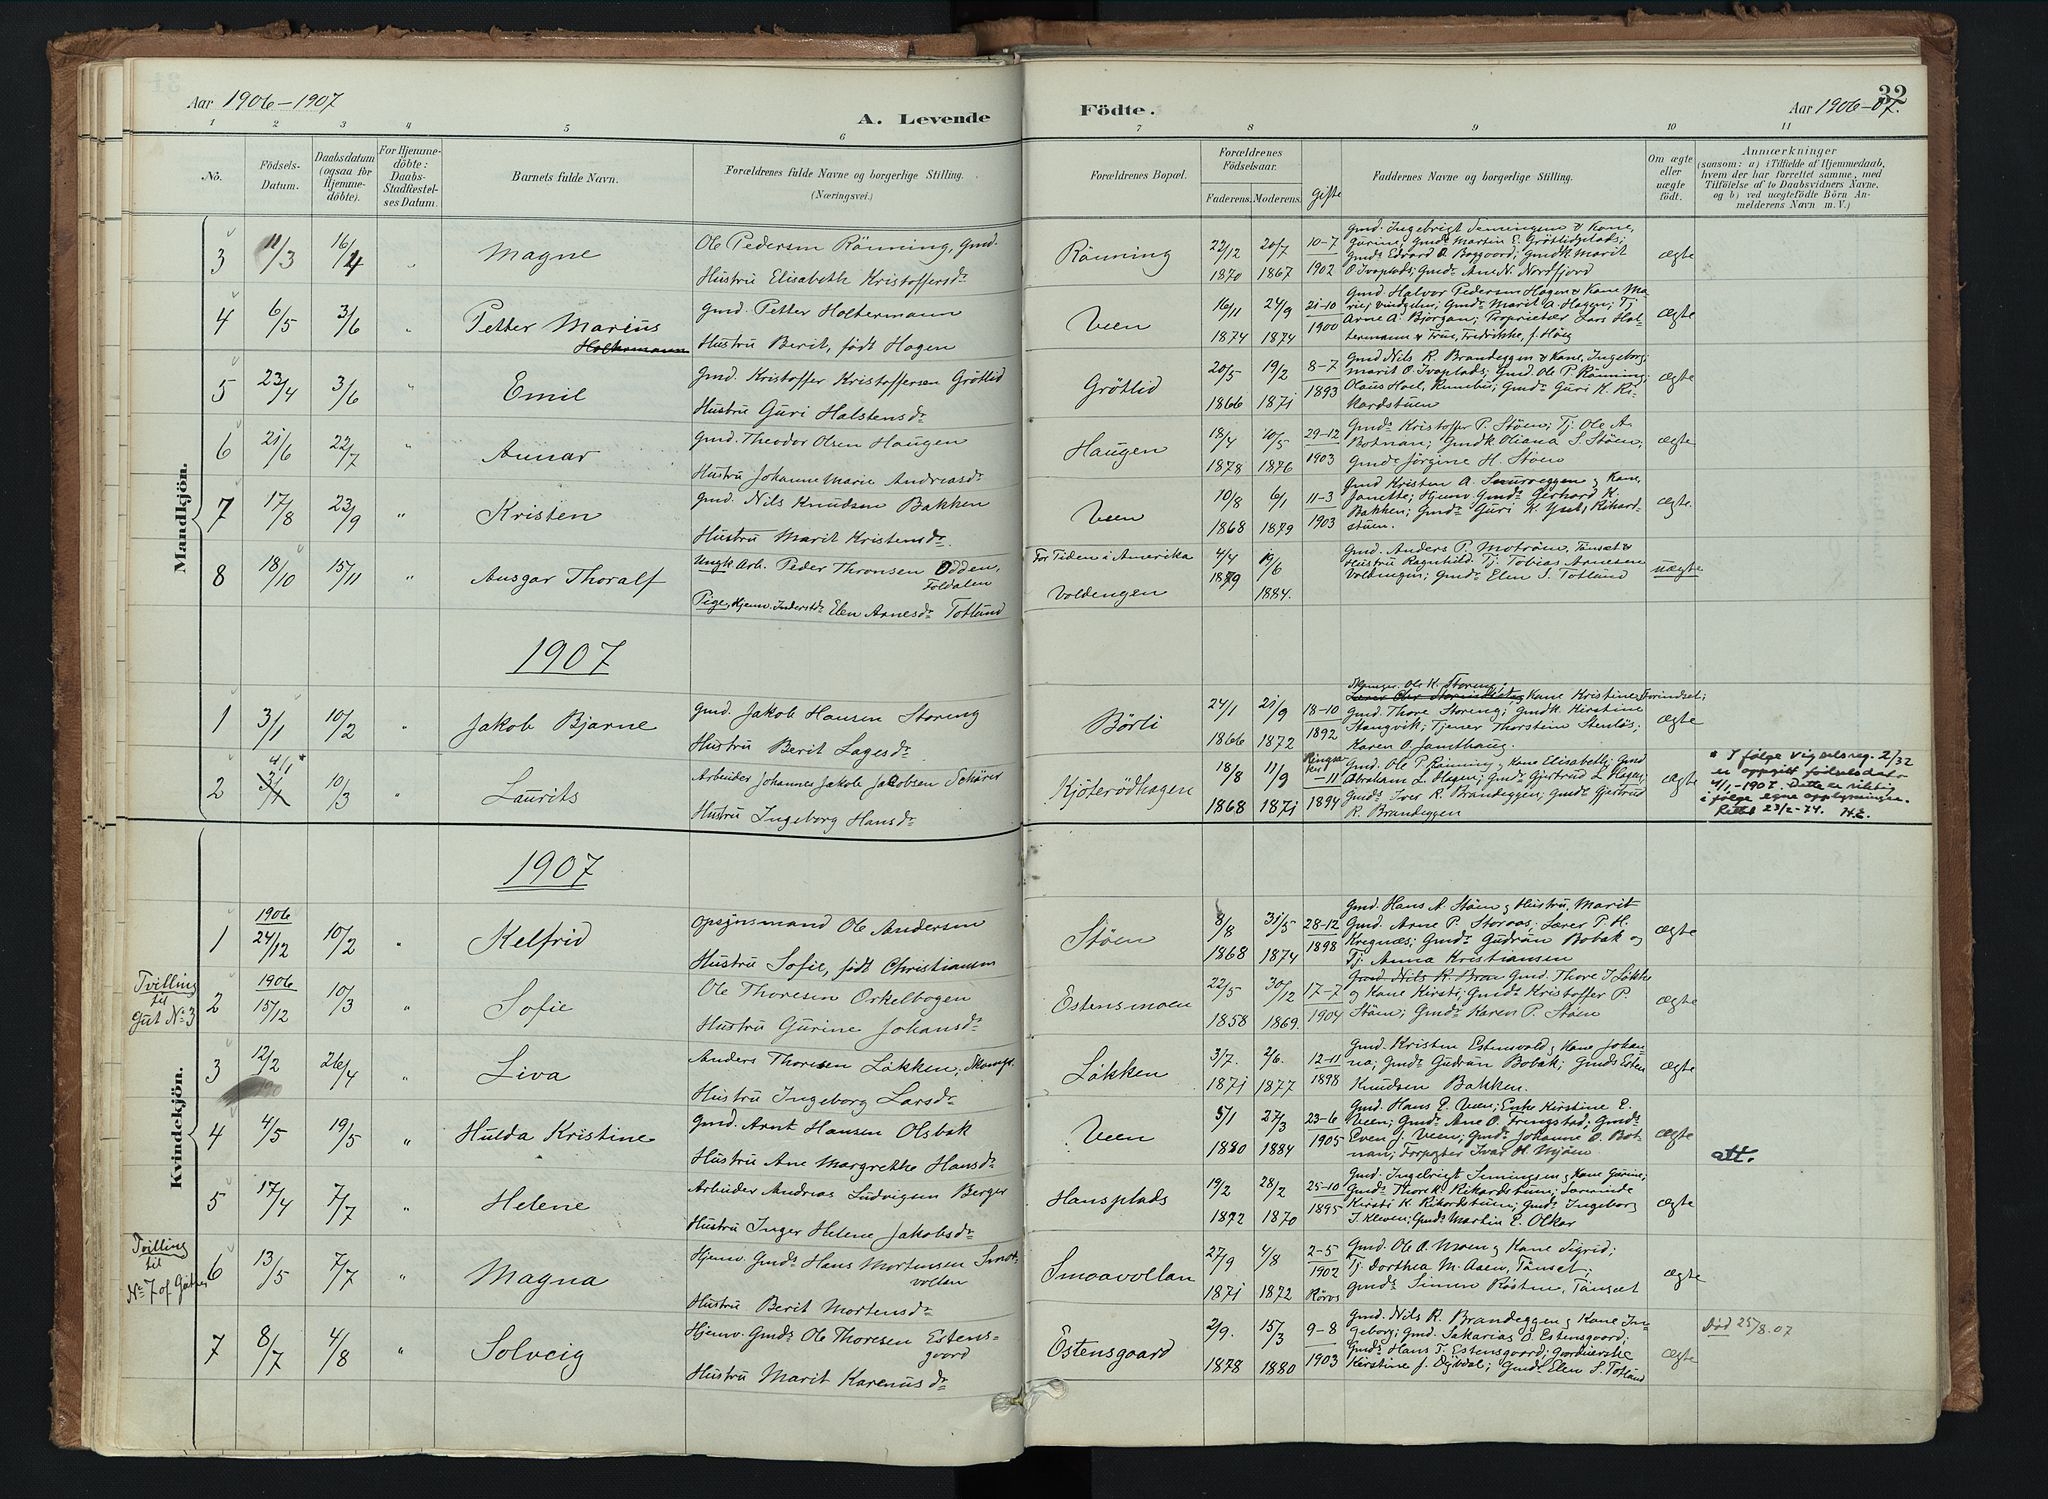 Aar 1906-1907
A. Levende
Födte.
Aar 1906-07.
32
1 2 3 4 5 6 7 8 9 10 11
Nö.
Födsels-Datum.
Daabsdatum (ogsaa for Hjemmedöbte).
For Hjemmedöbte: Daabs-Stadfæstelses Datum.
Barnets fulde Navn.
Forældrenes fulde Navne og borgerlige Stilling.
(Næringsvei.)
Forældrenes Bopæl.
Forældrenes Födselsaar.
Faderens. Moderens.
Gifte
Faddernes Navne og borgerlige Stilling.
Om ægte eller uægte födt.
Anmærkninger
(saasom: a) i Tilfælde af Hjemmedaab,
hvem der har forrettet samme, med
Tilföielse af to Daabsvidners Navne,
og b) ved uægtefödte Börn An-
melderens Navn m. V.)
Mandkjön.
3 11/3 16/4 " Magne
Ole Pedersen Rönning, Gmd.
Hustru Elisabeth Kristoffersdr
Rönning
22/12 1870 20/7 1867 10-7 1902
Gmd. Ingebrigt Semingsen & Kone,
Gurine, Gmds Martin E. Grötlidplads;
Gmds Edvard O. Baggaard; Gmdk. Marit
O. Ivoplads; Gmdr Ane N. Nordfjord
ægte
4 6/5 3/6 " Petter Marius
Holtermann
Gmd. Petter Holtermann
Hustru Berit, født Hagen
Veen
16/11 1874 24/9 1874 21-10 1900
Gmd. Halvor Pedersen Hagen & Kone Ma-
rie, Vingelen; Gmdr Marit A. Hagen; Tj.
Arne A. Bjørgan; Proprietær Lars Hol-
termann & Frue, Fredrikke, f. Høeg
ægte
5 23/4 3/6 " Emil
Gmd. Kristoffer Kristoffersen Grötlid
Hustru Guri Halstensdr
Grötlid
20/5 1866 19/2 1871 8-7 1893
Gmd Nils R. Brandeggen & Kone, Ingeborg;
Marit O. Ivoplads; Gmd. Ole P. Rönning;
Olaus Hoel, Rennebu; Gmdr Guri K. Ri-
kardstuen
ægte
6 21/6 22/7 " Annar
Gmd. Theodor Olsen Haugen
Hustru Johanne Marie Andreasdr
Haugen
18/4 1878 10/5 1876 29-12 1903
Gmds Kristoffer P. Støen; Tj. Ole A.
Botnan; Gmdk. Oliana S. Støen;
Gmdr Jørgine H. Støen
ægte
7 17/8 23/9 " Kristen
Gmd. Nils Knudsen Bakken
Hustru Marit Kristensdr.
Veen
10/8 1868 6/1 1879 11-3 1903
Gmd Kristen A. Snurveggen & Kone,
Janette; Hjemv. Gmds Gerhard K.
Bakken; Gmdr Guri K. Yset, Rikard-
stuen.
ægte.
8 18/10 15/11 " Ansgar Thoralf
Ungk. Arb. Peder Thronsen Odden,
Foldalen
Pige, Hjemv. Inderstdr Elen Arnesdr Totlund
For Tiden i Amerika
Voldengen
4/4 1879 19/6 1884.
Gmd. Anders P. Motrøen, Tønset &
Hustru Ragnhild. Tj. Tobias Arnesen
Voldengen; Gmdr Elen S. Totlund
uægte
1907
1 3/1 10/2 " Jakob Bjarne
Gmd. Jakob Hansen Storeng
Hustru Berit Lagesdr
Börli
24/1 1866 21/9 1872 18-10 1892
Ole K. Storeng;
Kone Kristine
Gmd. Thore Storeng; Gmdk. Kirstine
Stangvik; Tjener Thorstein Stenløs;
Karen O. Jamthaug.
ægte
2 4/1* 3/4 10/3 Laurits
Arbeider Johannes Jakob Jakobsen Schärer
Hustru Ingeborg Hansdr
Kjöterödhagen
18/8 1868 11/9 1871 Ringsaker -11 1894
Gmd. Ole P. Rönning & Kone Elisabeth; Gmd
Abraham L. Hagen; Gmdr Gjertrud L. Hagen;
Gmds Iver R. Brandeggen; Gmdr Gjertrud
R. Brandeggen
ægte
* I følge vigselsreg. 2/32
er oppgitt fødselsdato
4/1-1907. Dette er riktig
i følge egne opplysninger.
Rettet 23/2-74. H.E.
Kvindekjön.
1907
1 1906 24/12 10/2 " Kelfrid
Opsynsmand Ole Andersen
Hustru Sofie, født Christiansen
Støen
8/8 1868 31/5 1874 28-12 1898
Gmd. Hans A. Støen & Hustru, Marit
Gmd. Arne P. Storaas; Lærer P. H.
Kregnæs; Gmdr Gudrun Bobak og
Tj. Anna Kristiansen
ægte
Tvilling
til
Gut No 3
2 1906 15/12 10/3 " Sofie
Ole Thoresen Orkelbogen
Hustru Gurine Johansdr
Estensmoen
22/5 1858 30/12 1869. 17-7 1904
Gmd Nils R. Bran Gmd. Thore J Løkken
& Kone Kirsti; Gmds Kristoffer P.
Støen; Gmdr Karen P. Støen
ægte
3 12/2 26/4 " Liva
Anders Thoresen Løkken, Skomgr.
Hustru Ingeborg Larsdr
Løkken
3/7. 1871 2/6. 1877 12-11 1898
Gmd. Kristen Estensvold & Kone Johan-
na; Gmdr Gudrun Bobak; Gmds Esten
Knudsen Bakken.
ægte
4 4/5 19/5 " Hulda Kristine
Gmd. Arnt Hansen Olsbak
Hustru Ane Margrethe Hansdr
Veen
5/1 1880 27/3 1884 23-6 1905
Gmd. Hans E. Veen; Enke Kirstine E.
Veen; Gmdr Ane O. Fringstad; Gmds
Even J. Veen; Gmdr Johanne O. Bot-
nan; Forpagter Ivar H. Mjøen
ægte
att.
5 17/4 7/7 " Helene
Arbeider Andreas Ludvigsen Berger
Hustru Inger Helene Jakobsdr
Hansplads
19/2 1872 28/2 1870 25-10 1895
Gmd. Ingebrigt Semingsen & Kone Gurine;
Gmds Thore K. Rikardstuen; Lærerinde
Kirsti K. Rikardstuen; Gmdr Ingeborg
J. Kleven; Gmds Martin E. Olkar
ægte
Tvilling
til
No 7 of Gutter
6 13/5 7/7 " Magna
Hjemv. Gmds Hans Mortensen Smoa-
vollan
Hustru Berit Mortensdr
Smoavollan
27/9 1871 4/8 1872 2-5 1902 Röros
Gmd. Ole A. Moen & Kone Sigrid;
Tj. Dorthea M. Aaen, Tönset;
Gmds Simen Røsten, Tönset
ægte
7 8/7 4/8 " Solveig
Hjemv. Gmds Ole Thoresen Estens-
gaard
Hustru Marit Karenusdr
Estensgaard
2/9. 1878 15/3 1880 9-8 1903
Gmd. Nils R. Brandeggen & Kone In-
geborg; Gmd. Sakarias O. Estensgaard;
Gmds Hans T. Estensgaard; Gardeierske
Kirstine J. Dybdal; Gmdr Elen S. Totlund
ægte
Död 25/8.07